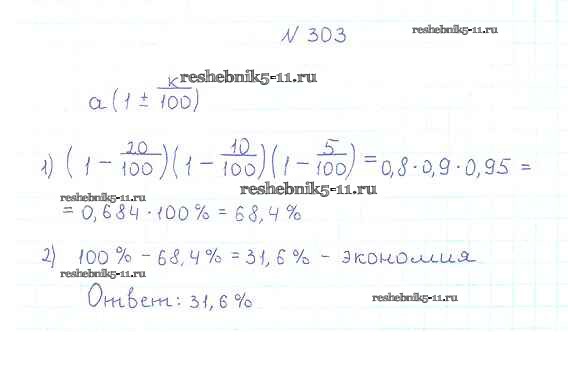 N 303
reshebnik5-11.ru
reshebnik5-11.ru
a(1 ± k/100)
1) (1 - 20/100)(1 - 10/100)(1 - 5/100) = 0,8 · 0,9 · 0,95 =
reshebnik5-11.ru
reshebnik5-11.ru
= 0,684 · 100% = 68,4%
2) 100% - 68,4% = 31,6% - экономия
reshebnik5-11.ru
Ответ: 31,6%
reshebnik5-11.ru